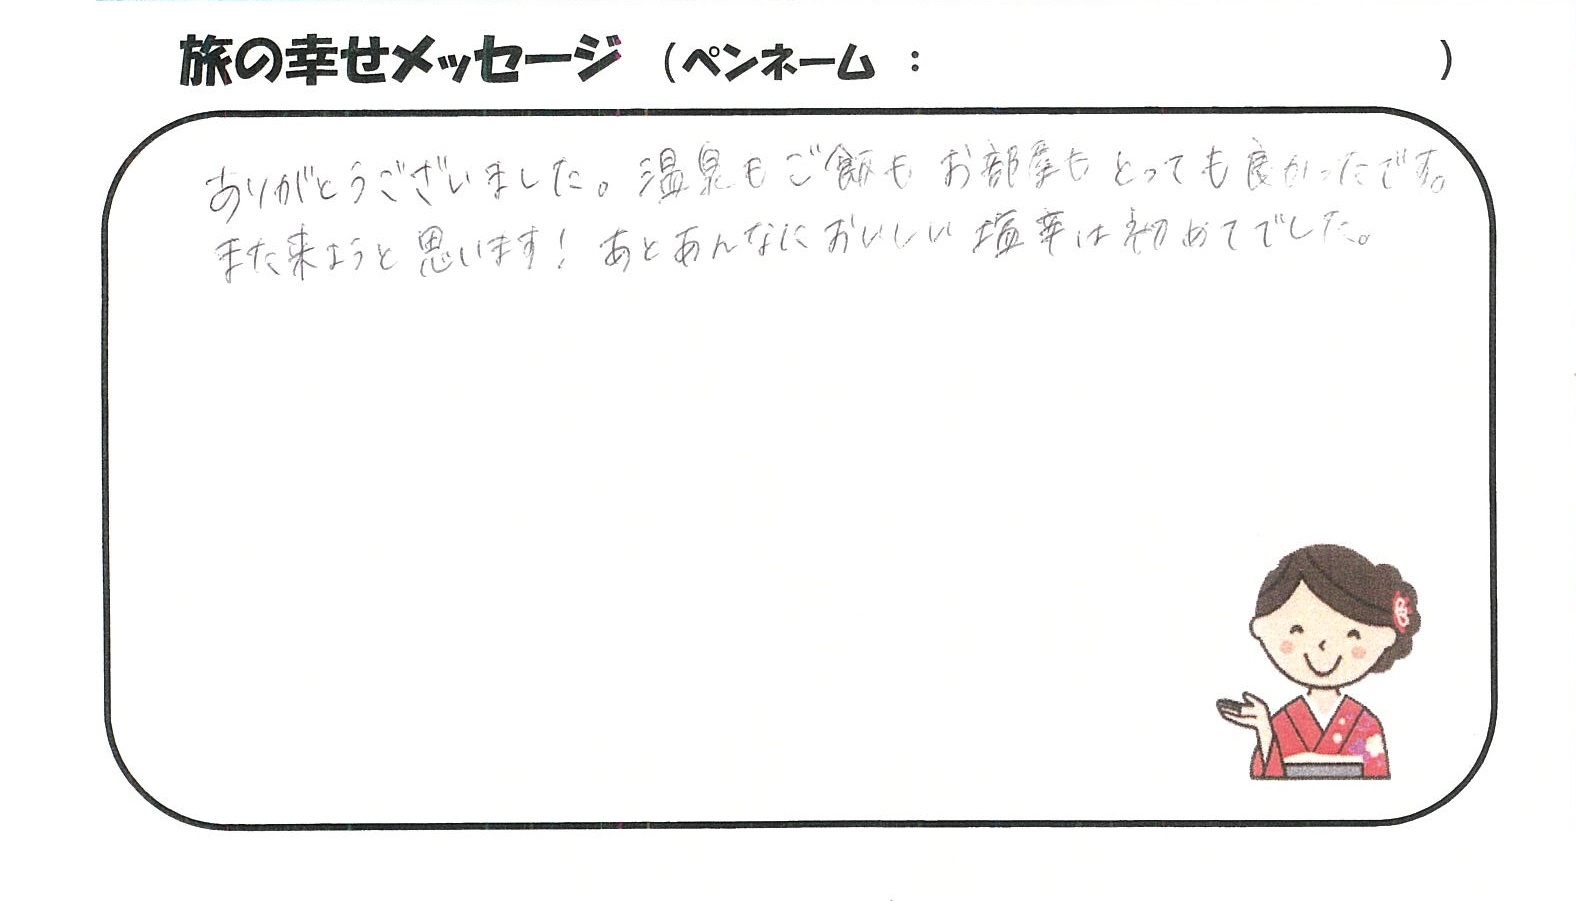 旅の幸せメッセージ （ペンネーム ： ）
ありがとうございました。温泉もご飯もお部屋もとっても良かったです。
また来ようと思います！あとあんなにおいしい塩辛は初めてでした。